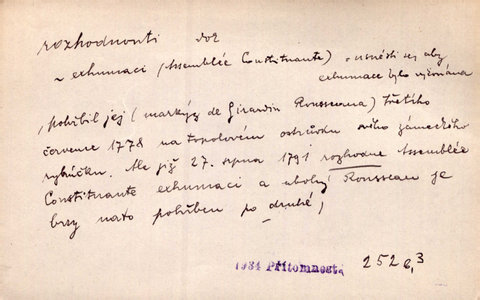 rozhodnouti dok
~ exhumaci (Assemblée Constituante) = usnésti se, aby
exhumace byla vykonána
, pohřbil jej (markýz de Girardin Rousseaua) třetího
července 1778 na topolovém ostrůvku svého zámeckého
rybníčku. Ale již 27. srpna 1791 rozhodne Assemblée
Constituante exhumaci a ubohý Rousseau je
brzy nato pohřben po druhé,
1934 Přítomnost
252 6,3